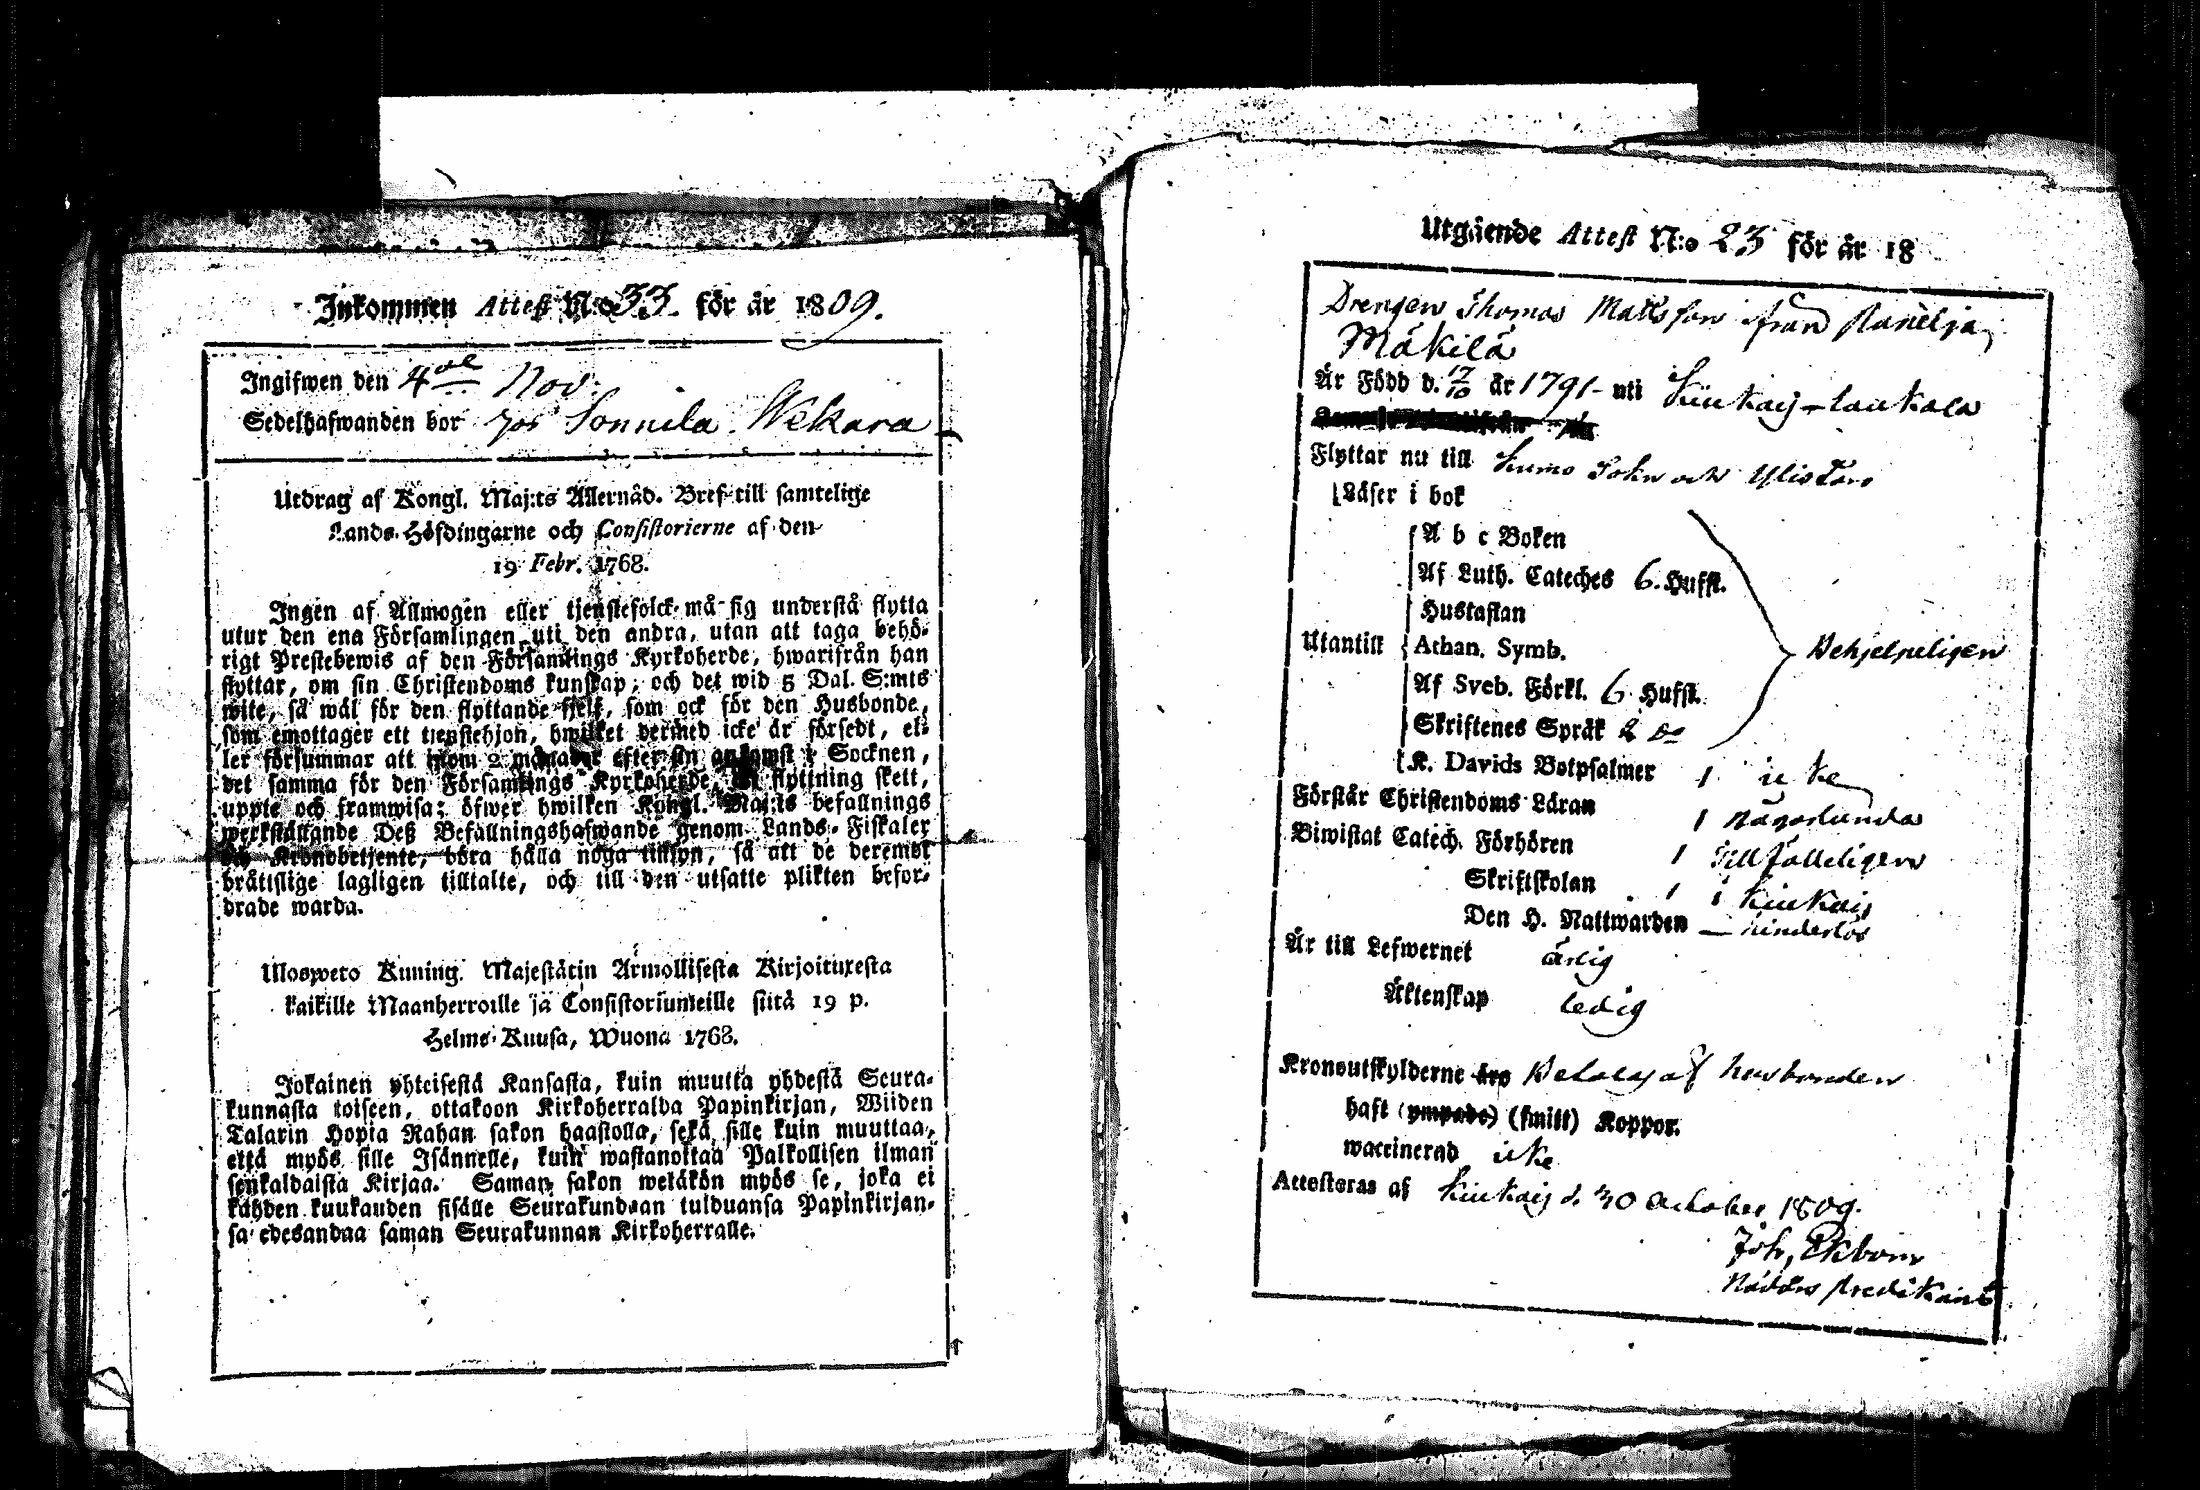 Inkommen Attest N:o 33. för år 1809.
Ingifwen den 4de Nov.
Sedelhafwanden bor hos Sonnila Wekara
Utdrag af Kongl. Maj:ts Allernåd. Bref till samtelige
Lands-Höfdingarne och Consistorierne af den
19 Febr. 1768.
Ingen af Allmogen eller tjenstefolck må sig understå flytta
utur den ena Församlingen uti den andra, utan att taga behö-
rigt Prestebewis af den Församlings Kyrkoherde, hwarifrån han
flyttar, om sin Christendoms kunskap; och det wid 5 Dal. S:mts
wite, så wäl för den flyttande sjelf, som ock för den Husbonde,
som emottager ett tjenstehjon, hwilket dermed icke är försedt, el-
ler försummar att inom 2 månader efter sin ankomst i Socknen,
det samma för den Församlings Kyrkoherde, dit flyttning skett,
uppte och framwisa; öfwer hwilken Kongl. Maj:ts befallnings
werkställande Deß Befallningshafwande genom Lands-Fiskaler
och Kronobetjente, böra hålla noga tillsyn, så att de deremot
bråttslige lagligen tilltalte, och till den utsatte plikten befor-
drade warda.
Uloswero Kuning. Majestätin Armollisesta Kirjoituxesta
kaikille Maanherroille ja Consistoriumeille siitä 19 p.
Helme-Kuusa, Wuona 1768.
Jokainen yhteisestä Kansasta, kuin muutta yhdestä Seura-
kunnasta toiseen, ottakoon Kirkoherralda Papinkirjan, Wiiden
Talarin Hopia Rahan sakon haastolla, sekä sille kuin muuttaa,
että myös sille Isännelle, kuin wastanottaa Palkollisen ilman
senkaldaista Kirjaa. Saman sakon wetäkön myös se, joka ei
kahden kuukauden sisälle Seurakundaan tulduansa Papinkirjan-
sa edesandaa saman Seurakunnan Kirkoherralle.
Utgående Attest N:o 23 för år 18
Drengen Thomas Matsson ifrån Ranelja
Mäkilä
Är Född d. 17/10 år 1791 uti Kiukais-laukola
Flyttar nu till Kumo Sokn och Ylistaro
Läser i bok
A b c Boken
Af Luth. Cateches 6. Hufst.
Hustaflan
Utantill Athan. Symb. Behjelpeligen
Af Sveb. Förkl. 6 Hufst.
Skriftenes Språk 2 do
K. Davids Botpsalmer icke
Förstår Christendoms Läran någorlunda
Biwistat Catech. Förhören Tillfälleligen
Skriftskolan i Kiukais
Den H. Nattwarden hinderlös
Är till Lefwernet ärlig
Äktenskap ledig
Kronoutskylderne äro Betalas af husbonden
haft (ympade) (smitt) Koppor.
waccinerad icke
Attesteras af Kiukais d. 30 October 1809.
Joh. Ekbom
Nådårs predikant